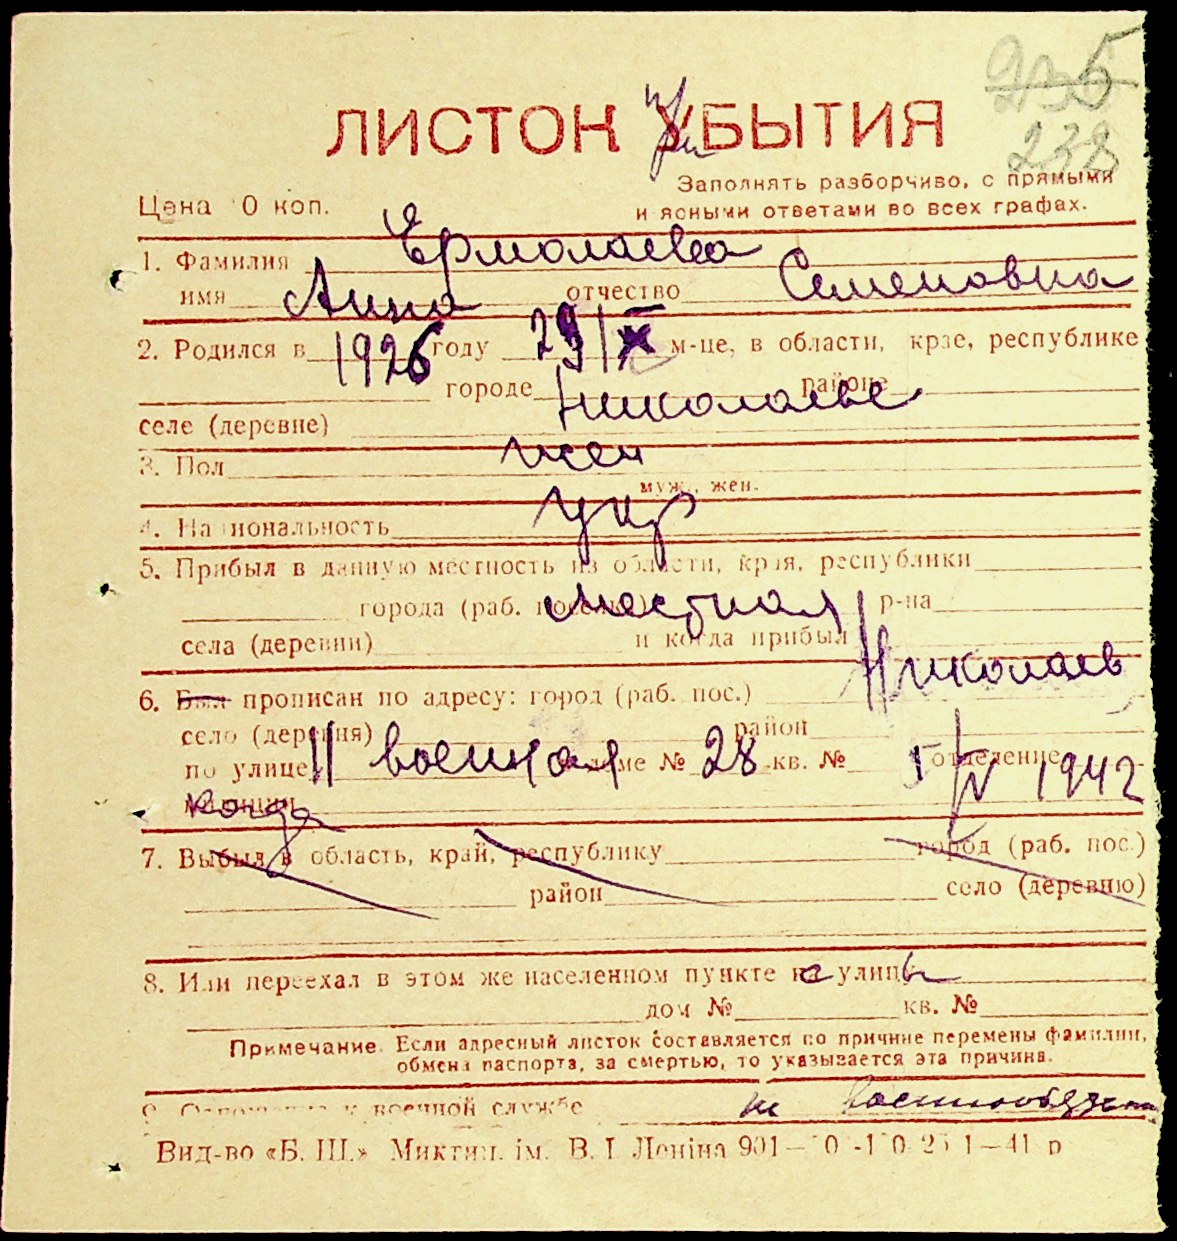 235
238
ЛИСТОК УБЫТИЯ
при
Заполнять разборчиво, с прямыми
Цена 0 коп.
и ясными ответами во всех графах.
1. Фамилия Ермолаева
имя Анна отчество Семеновна
2. Родился в 1926 году 29/X м-це, в области, крае, республике
городе Николаеве районе
селе (деревне)
3. Пол жен
муж., жен.
4. Национальность укр
5. Прибыл в данную местность из области, края, республики
города (раб. поселка) местная р-на
села (деревни) и когда прибыл
6. Был прописан по адресу: город (раб. пос.) Николаев
село (деревня) район
по улице II военная доме № 28 кв. № отделение
милиции когда 1/IV 1942
7. Выбыл в область, край, республику город (раб. пос.)
район село (деревню)
8. Или переехал в этом же населенном пункте с улицы
дом № кв. №
Примечание. Если адресный листок составляется по причине перемены фамилии,
обмена паспорта, за смертью, то указывается эта причина.
9. Отношение к военной службе не военнообязан
Вид-во «Б. Ш.» Микт ім. В. І. Леніна 901